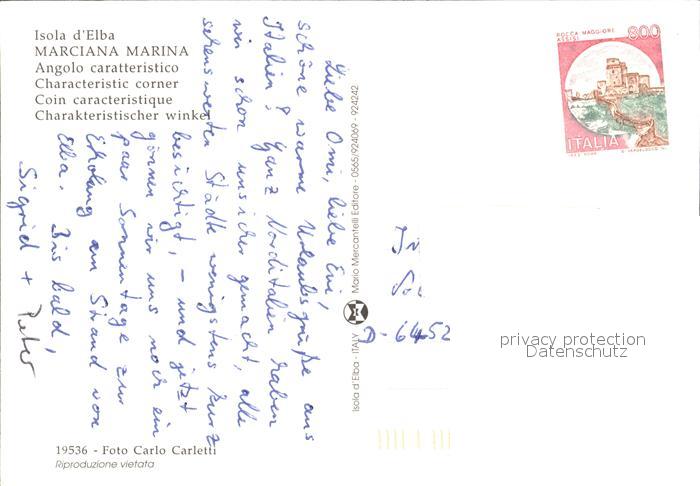 Isola d'Elba
MARCIANA MARINA
Angolo caratteristico
Characteristic corner
Coin caracteristique
Charakteristischer winkel
Liebe Omi, liebe Evi,
schöne warme Urlaubsgrüße aus
Italien! Ganz Norditalien haben
wir schon unsicher gemacht, alle
sehenswerten Städte wenigstens kurz
besichtigt, – und jetzt
gönnen wir uns noch ein
paar Sonnentage zur
Erholung am Strand von
Elba. Bis bald,
Sigrid + Peter
19536 - Foto Carlo Carletti
Riproduzione vietata
Isola d'Elba - ITALY Mario Mercantelli Editore - 0565/924069 - 924242
ROCCA MAGGIORE
ASSISI
800
ITALIA
D-6452
privacy protection
Datenschutz